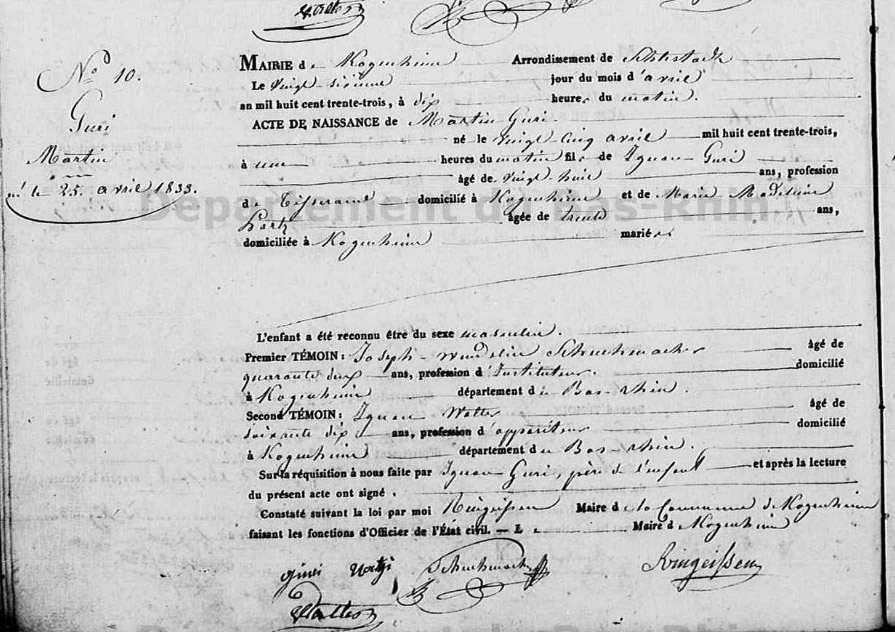 Walter
No 10.
Guri
Martin
né le 25. avril 1833.
MAIRIE de Kogenheim Arrondissement de Schlestadt
Le vingt-sixième jour du mois d'avril
an mil huit cent trente-trois, à dix heures du matin.
ACTE DE NAISSANCE de Martin Guri
né le vingt-cinq avril mil huit cent trente-trois,
à une heures du matin fils de Ignace Guri
âgé de vingt huit ans, profession
de Tisserand domicilié à Kogenheim et de Marie Madeleine
âgée de trente ans,
domiciliée à Kogenheim mariés
L'enfant a été reconnu être du sexe masculin.
Premier TÉMOIN: Joseph Wendelin Schuhmacher âgé de
quarante deux ans, profession d'Instituteur domicilié
à Kogenheim département du Bas-rhin.
Second TÉMOIN: Ignace Walter âgé de
soixante dix ans, profession d'appariteur domicilié
à Kogenheim département du Bas-rhin.
Sur la réquisition à nous faite par Ignace Guri, père de l'enfant et après la lecture
du présent acte ont signé.
Constaté suivant la loi par moi Ringeissen Maire de la Commune de Kogenheim
faisant les fonctions d'Officier de l'État civil. — Le Maire de Kogenheim
Schuhmacher Ringeissen
Walter
Département du Bas-Rhin